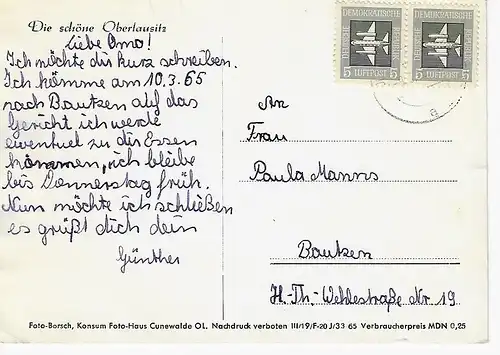 Die schöne Oberlausitz
Liebe Omo!
Ich möchte dir kurz schreiben.
Ich kömme am 10.3.65
nach Bautzen auf das
Gericht ich werde
eventuel zu dir Essen
kömmen, ich bleibe
bis Donnerstag früh.
Nun möchte ich schließen
es grüßt dich dein
Günther
DEUTSCHE DEMOKRATISCHE REPUBLIK
5 LUFTPOST 5
DEUTSCHE DEMOKRATISCHE REPUBLIK
5 LUFTPOST 5
An
Frau
Paula Manns
Bautzen
H.-Th.-Wehlestraße Nr. 19
Foto-Borsch, Konsum Foto-Haus Cunewalde OL. Nachdruck verboten III/19/F-20 J/33 65 Verbraucherpreis MDN 0,25